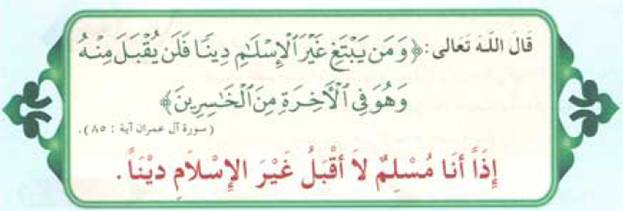 قَالَ اللَّهُ تَعَالَى : ﴿ وَمَن يَبْتَغِ غَيْرَ ٱلْإِسْلَٰمِ دِينًا فَلَن يُقْبَلَ مِنْهُ
وَهُوَ فِى ٱلْأٓخِرَةِ مِنَ ٱلْخَٰسِرِينَ ﴾
( سورة آل عمران آية : ٨٥ ) .
إِذَاً أنَا مُسْلِمٌ لاَ أقْبَلُ غَيْرَ الإِسْلاَمِ دِيْنَاً .